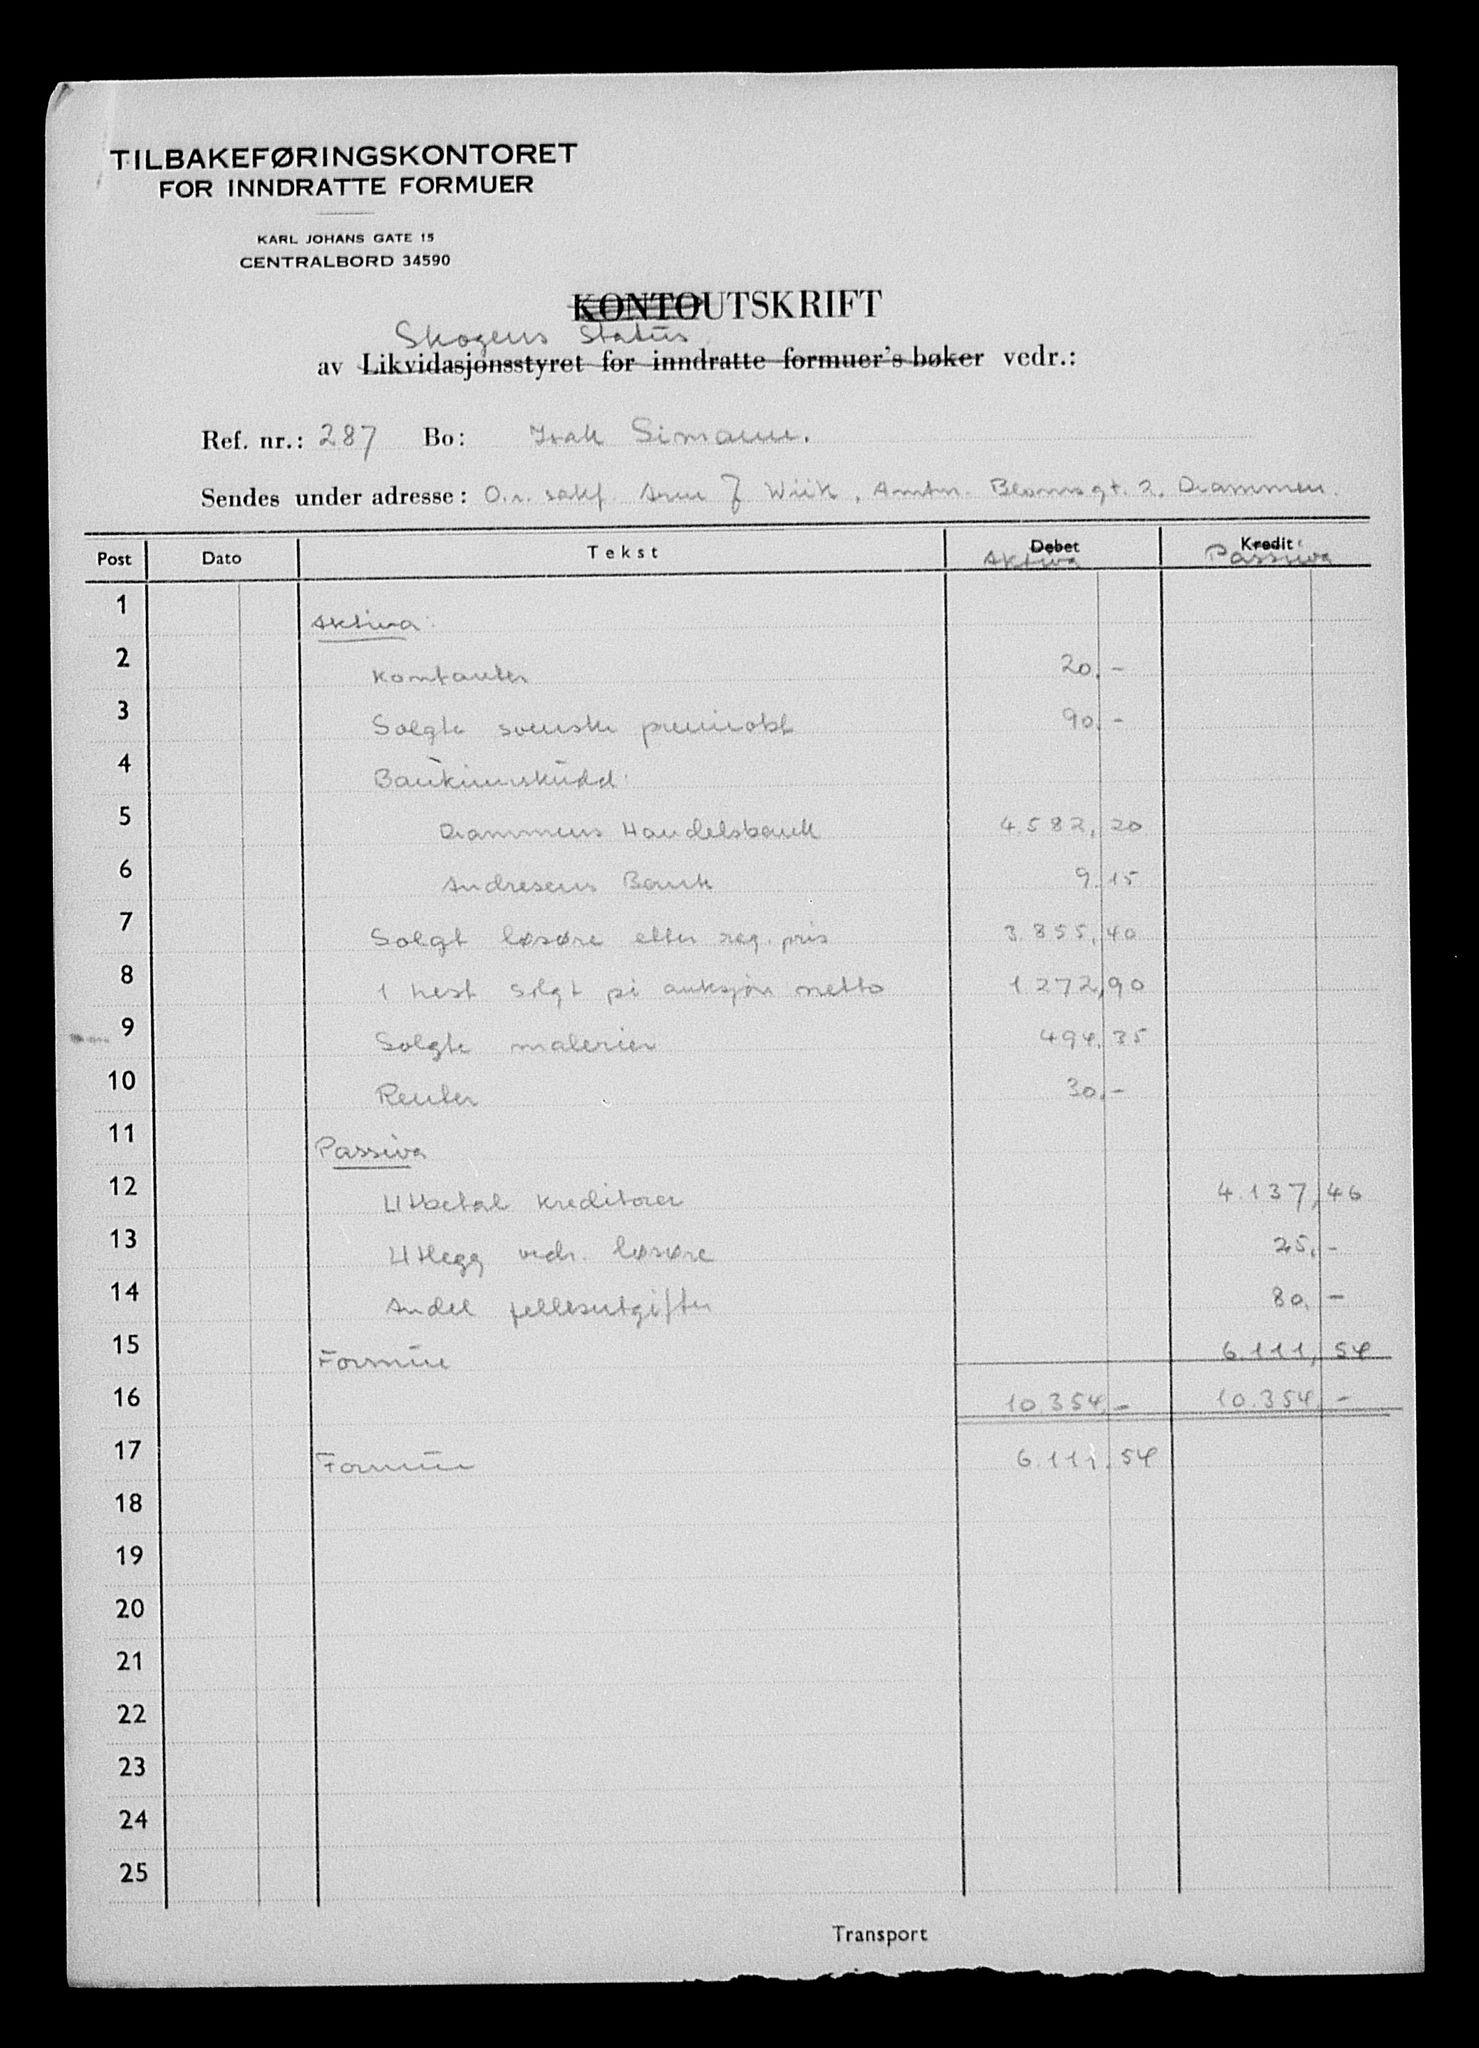 TILBAKEFØRINGSKONTORET
FOR INNDRATTE FORMUER
KARL JOHANS GATE 15
CENTRALBORD 34590
KONTOUTSKRIFT
Skogens Status
av Likvidasjonsstyret for inndratte formuer's bøker vedr.:
Ref. nr.: 287 Bo: Isak Simann.
Sendes under adresse: O.r. sakf. Arne J Wiik, Amtm. Blomsgt. 2, Drammen.
Post Dato Tekst Debet Kredit
Aktiva Passiva
1 Aktiva:
2 Kontanter 20,-
3 Solgte svenske premieobl 90,-
4 Bankinnskudd:
5 Drammens Handelsbank 4582,20
6 Andresens Bank 9,15
7 Solgt løsøre etter reg. pris 3.855,40
8 1 hest solgt på auksjon netto 1272,90
9 Solgte malerier 494,35
10 Renter 30,-
11 Passiva
12 Utbetal kreditorer 4.137,46
13 Utlegg vedr. løsøre 25,-
14 Andel fellesutgifter 80,-
15 Formue 6.111,54
16 10.354,- 10.354,-
17 Formue 6.111,54
18
19
20
21
22
23
24
25
Transport